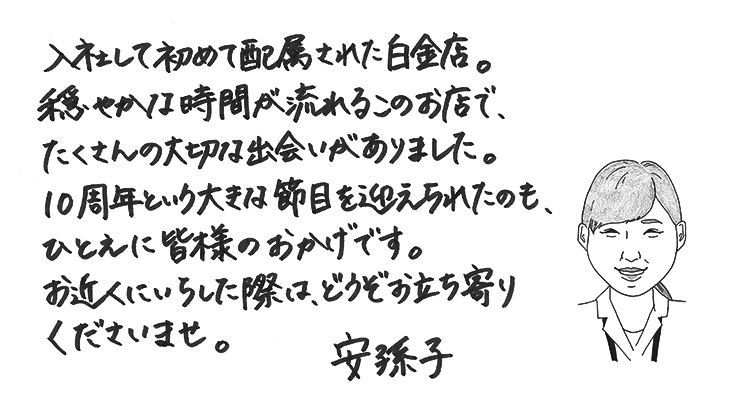 入社して初めて配属された白金店。
穏やかな時間が流れるこのお店で、
たくさんの大切な出会いがありました。
10周年という大きな節目を迎えられたのも、
ひとえに皆様のおかげです。
お近くにいらした際は、どうぞお立ち寄り
くださいませ。
安孫子